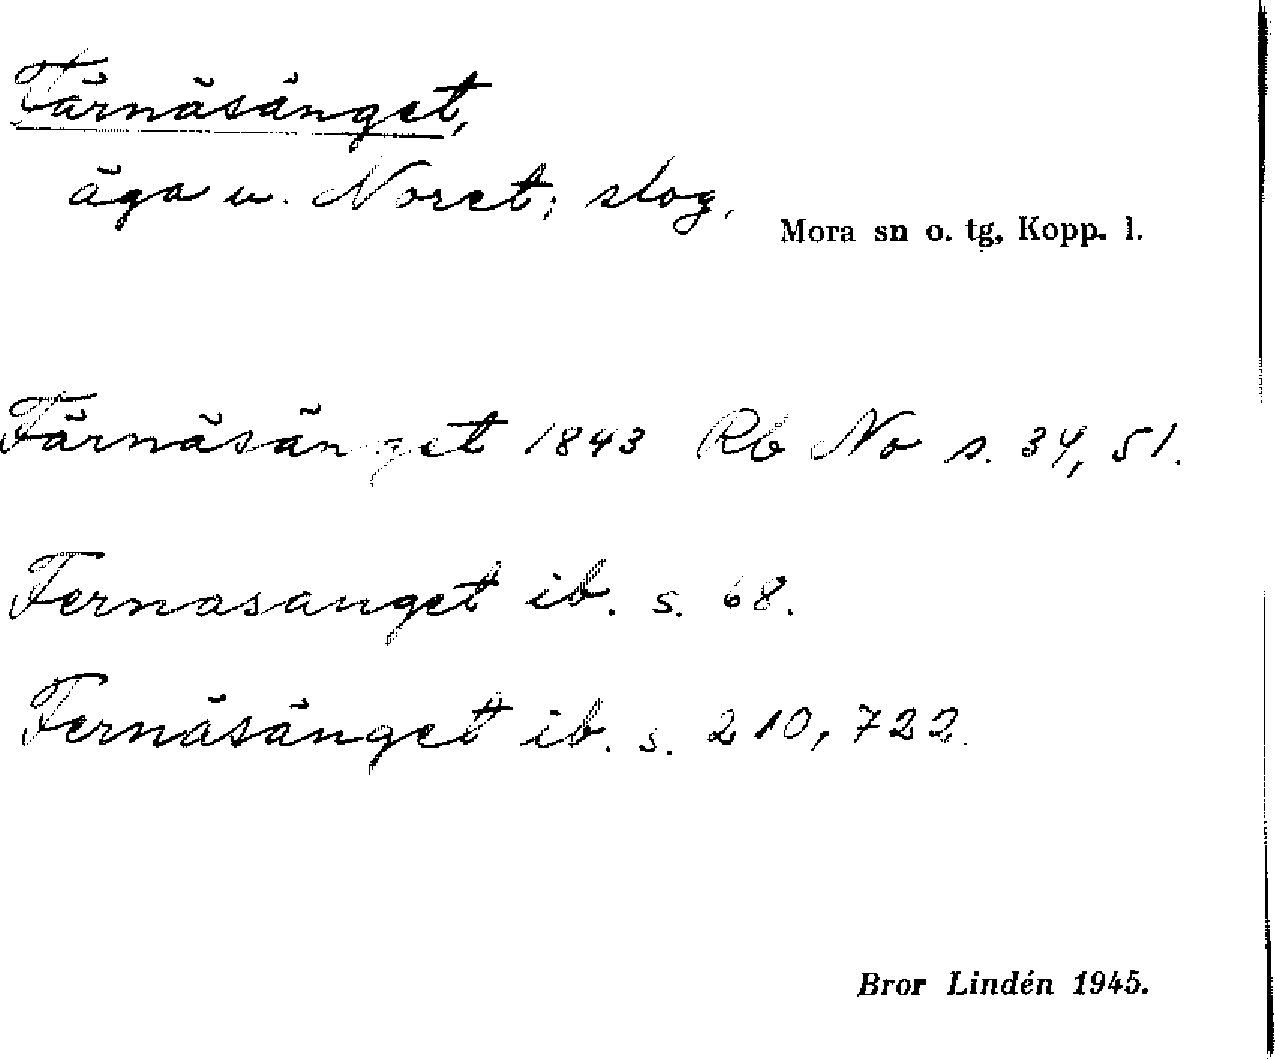 Färnäsänget,
äga u. Noret; slog.
Mora sn o. tg, Kopp. l.
Färnäsänget 1843 Rb No s. 34, 51.
Fernasanget ib. s. 68.
Fernäsänget ib. s. 210, 722.
Bror Lindén 1945.